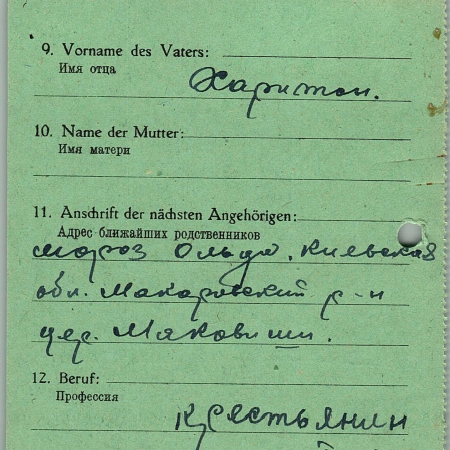 9. Vorname des Vaters:
Имя отца
Харитон.
10. Name der Mutter:
Имя матери
11. Anschrift der nächsten Angehörigen:
Адрес ближайших родственников
мороз Ольга. Киевская
обл. Макаровский р-н
дер. Мяковищи.
12. Beruf:
Профессия
крестьянин